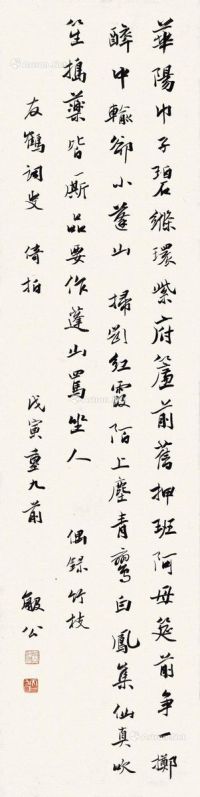 華陽巾子碧縧環紫府簾前舊押班阿母筵前争一擲
醉中輸卻小蓬山　掃剗紅霞陌上塵青鸞白鳳集仙真吹
笙搗藥皆厮品要作蓬山罵坐人　偶録竹枝
友鶴詞叟　倚拍　戊寅重九前　公